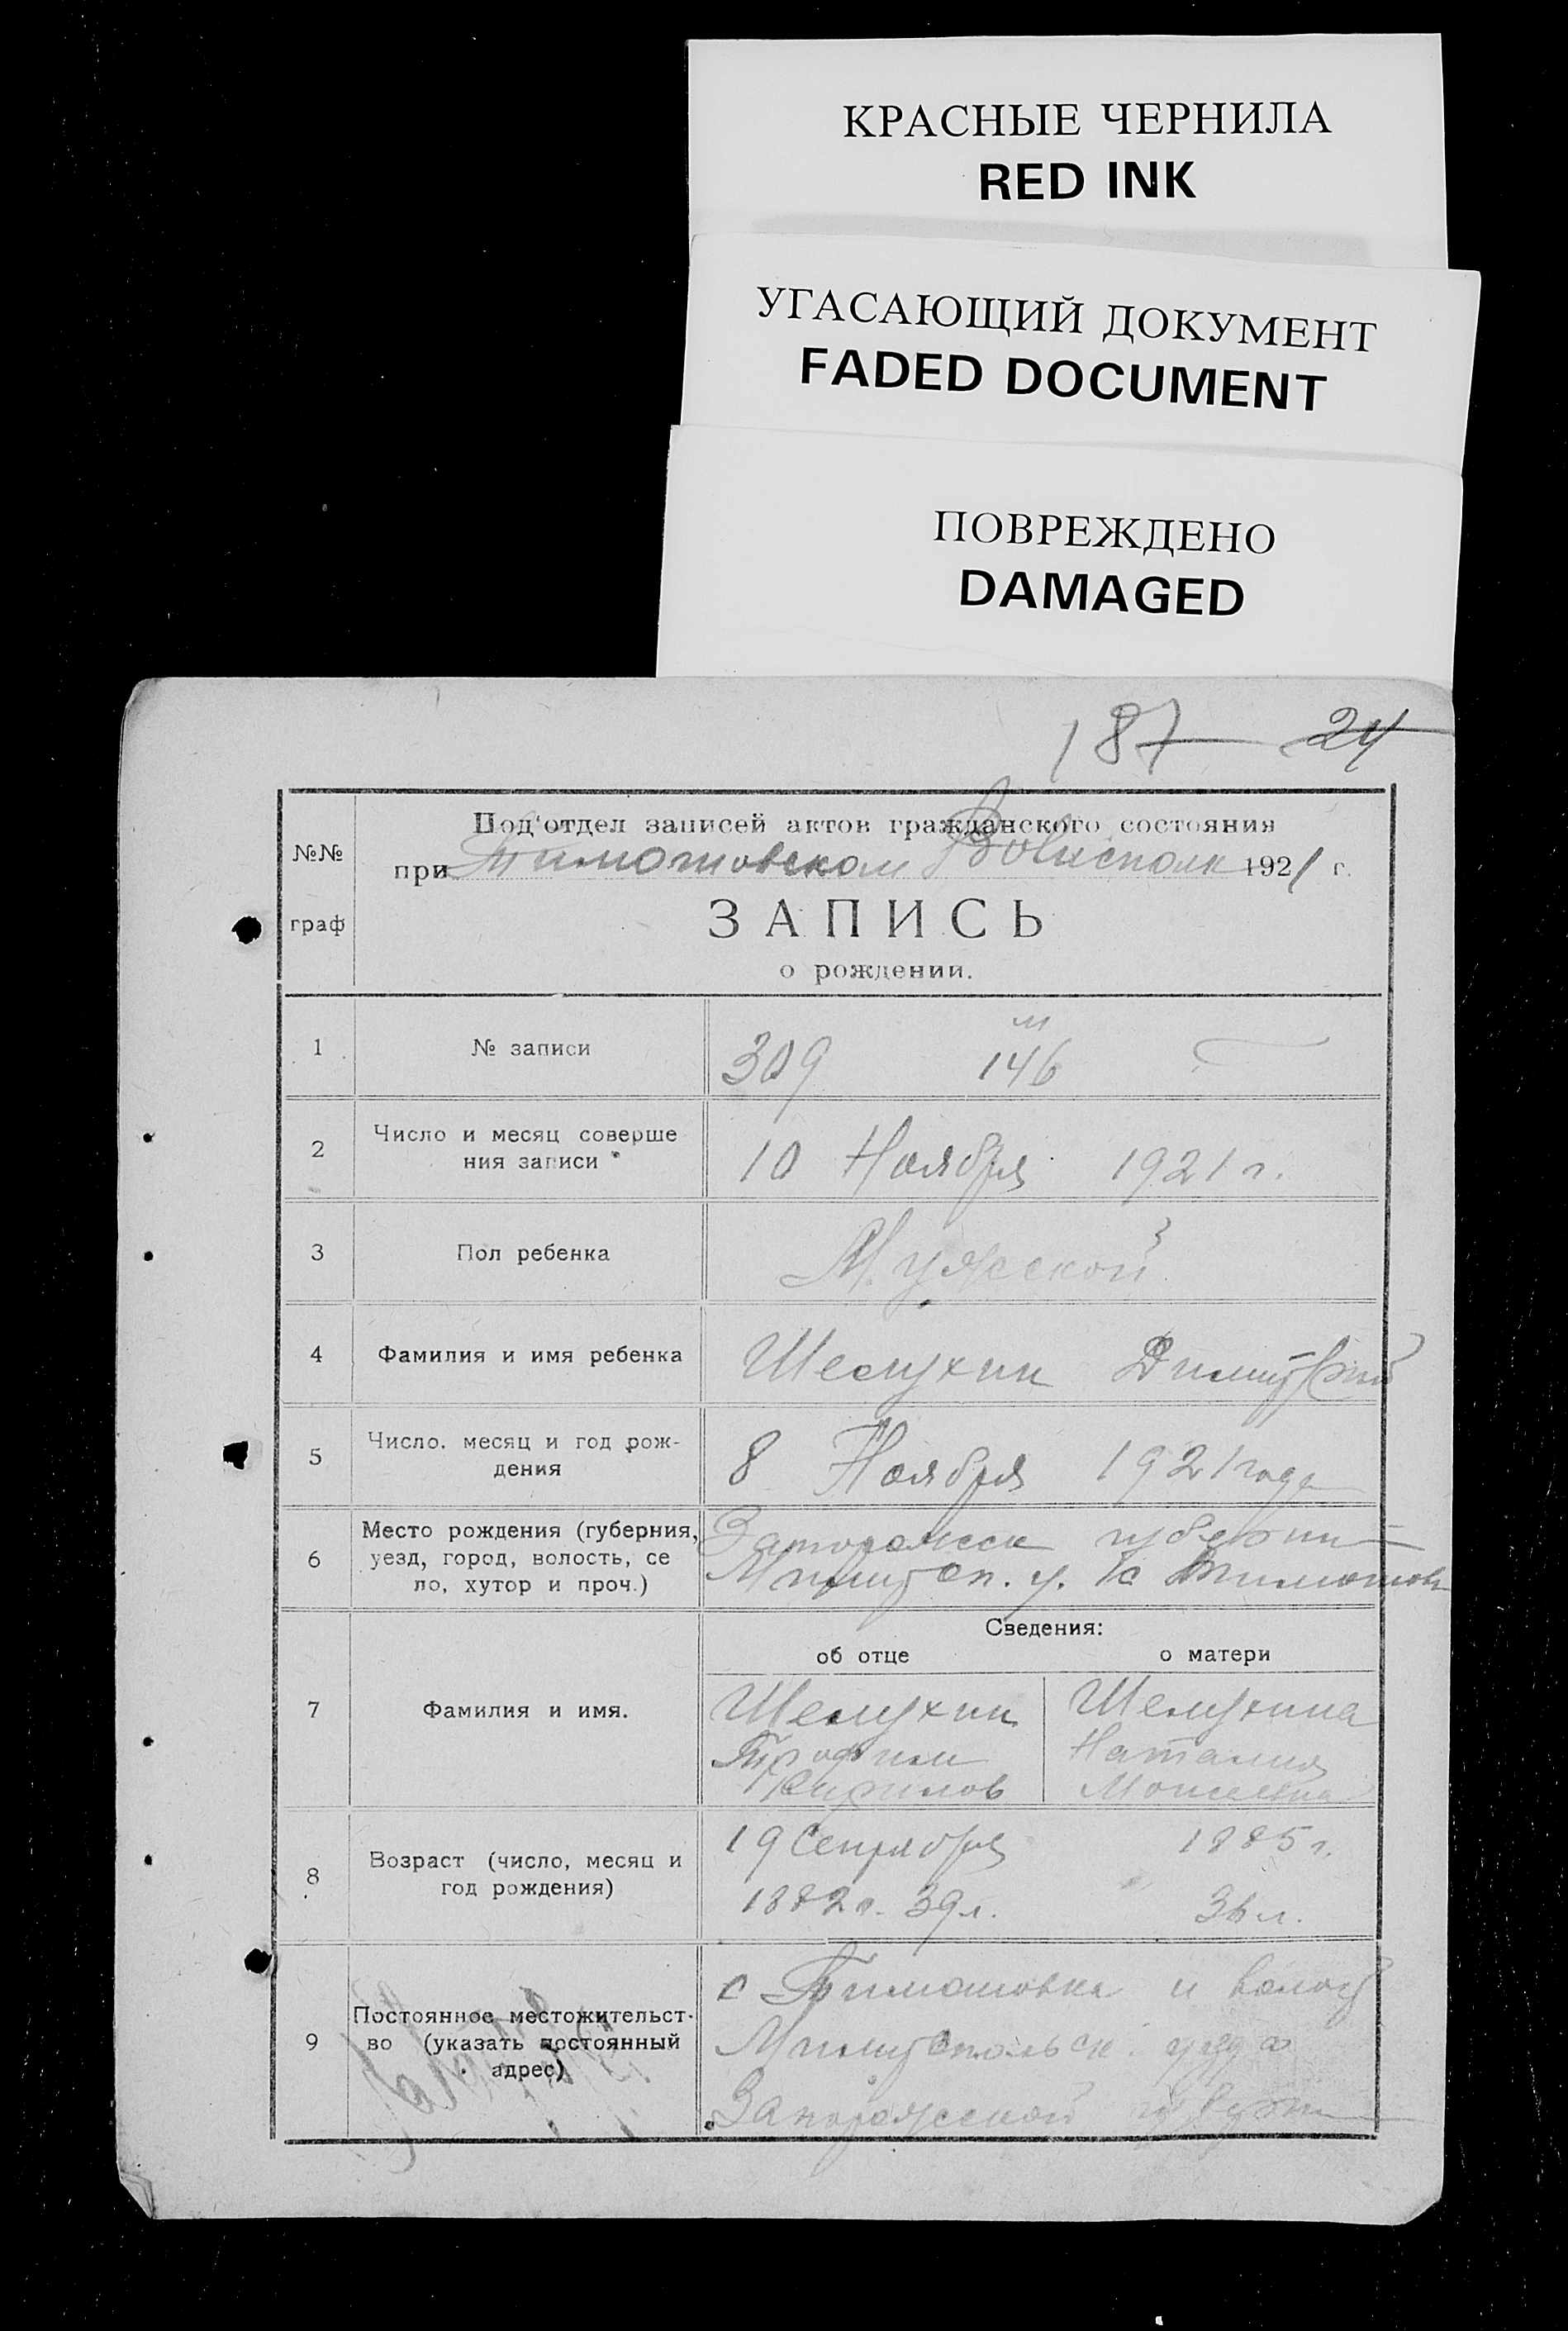 КРАСНЫЕ ЧЕРНИЛА
RED INK
УГАСАЮЩИЙ ДОКУМЕНТ
FADED DOCUMENT
ПОВРЕЖДЕНО
DAMAGED
187 24
№№ граф
Под'отдел записей актов гражданского состояния
при Тимошовском Волисполк 1921 г.
ЗАПИСЬ
о рождении.
1 № записи 309 м 146
2 Число и месяц соверше
ния записи 10 Ноября 1921 г.
3 Пол ребенка Мужской
4 Фамилия и имя ребенка Шелухин Димитрий
5 Число. месяц и год рож-
дения 8 Ноября 1921 года
6 Место рождения (губерния,
уезд, город, волость, се
ло, хутор и проч.)
Запорожск губернии
Мелитоп. у. с Тимошовк
Сведения:
об отце о матери
7 Фамилия и имя.
Шелухин Шелухина
Трофим Наталия
Кирилов
8 Возраст (число, месяц и
год рождения)
19 Сентября 1885 г.
1882 г. 39 л. 36 л.
9 Постоянное местожительст-
во (указать постоянный
адрес)
с Тимошовка и волост
Мелитопольск. уезда
Запорожской губерн